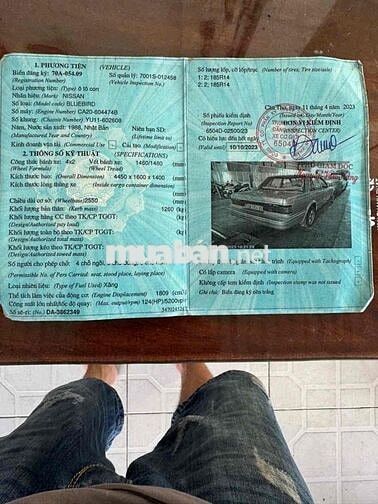 1. PHƯƠNG TIỆN (VEHICLE)
Biển đăng ký: 70A-054.09 Số quản lý: 7001S-012458
(Registration Number) (Vehicle Inspection No.)
Loại phương tiện: (Type) ô tô con
Nhãn hiệu: (Mark) NISSAN
Số loại: (Model code) BLUEBIRD
Số máy: (Engine Number) CA20-604474B
Số khung: (Chassis Number) YU11-602608
Năm, Nước sản xuất: 1988, Nhật Bản Niên hạn SD:
(Manufactured Year and Country) (Lifetime limit to)
Kinh doanh vận tải (Commercial Use) Cải tạo (Modification)
2. THÔNG SỐ KỸ THUẬT (SPECIFICATIONS)
Công thức bánh xe: 4x2 Vết bánh xe: 1460/1440
(Wheel Formula) (Wheel Tread)
Kích thước bao: (Overall Dimension) 4450 x 1690 x 1400
Kích thước lòng thùng xe (Inside cargo container dimension)
Chiều dài cơ sở: (Wheelbase) 2550
Khối lượng bản thân: (Kerb mass) 1260
Khối lượng hàng CC theo TK/CP TGGT:
(Design/Authorized pay load)
Khối lượng toàn bộ theo TK/CP TGGT:
(Design/Authorized total mass)
Khối lượng kéo theo TK/CP TGGT:
(Design/Authorized towed mass)
Số người cho phép chở: 4 chỗ ngồi,
(Permissible No. of Pers Carried: seat, stood place, laying place)
Loại nhiên liệu: (Type of Fuel Used) Xăng
Thể tích làm việc của động cơ: (Engine Displacement) 1809 (cm3)
Công suất lớn nhất/tốc độ quay: (Max. output/rpm) 124(HP)/5200vph
Số sê-ri: (No.) DA-3862349
Số lượng lốp, cỡ lốp/trục (Number of tires; Tire size/axle)
1: 2; 185R14
2: 2; 185R14
Cần Thơ, ngày 11 tháng 4 năm 2023
(Issued on: Day/Month/Year)
Số phiếu kiểm định
(Inspection Report No)
6504D-02690/23
Có hiệu lực đến hết ngày
(Valid until) 10/10/2023
ĐƠN VỊ KIỂM ĐỊNH
(INSPECTION CENTER)
GIÁM ĐỐC
(Equipped with Tachograph)
Có lắp camera (Equipped with camera)
Không cấp tem kiểm định (Inspection stamp was not issued)
Ghi chú: Biển đăng ký nền trắng
muaban.net